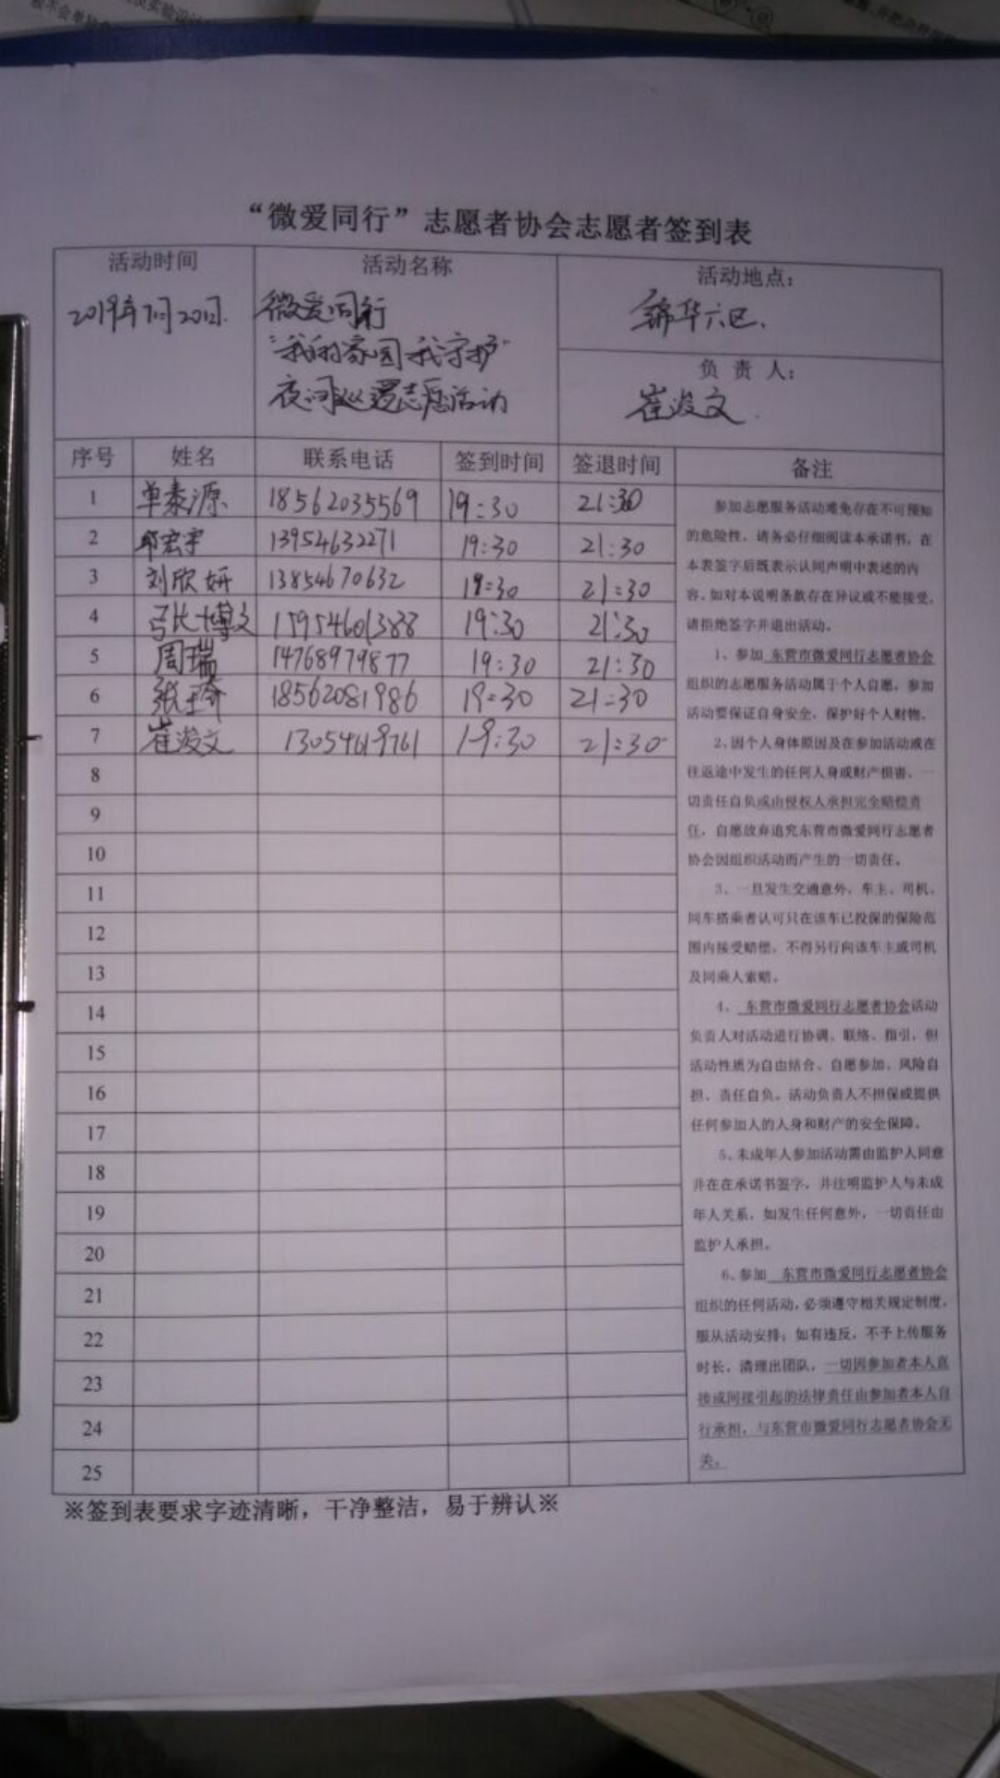 “微爱同行”志愿者协会志愿者签到表
活动时间
2019年7月20日.
活动名称
微爱同行
“我的家园我守护”
夜间巡逻志愿活动
活动地点：
锦华六区.
负 责 人：
崔浚文.
序号 姓名 联系电话 签到时间 签退时间 备注
1 单泰源 18562035569 19:30 21:30
2 邱宏宇 13954632271 19:30 21:30
3 刘欣妍 13854670632 19:30 21:30
4 博文 15954601388 19:30 21:30
5 周瑞 14768979877 19:30 21:30
6 张 18562081986 19:30 21:30
7 崔浚文 13054619761 19:30 21:30
8
9
10
11
12
13
14
15
16
17
18
19
20
21
22
23
24
25
参加志愿服务活动难免存在不可预知
的危险性，请务必仔细阅读本承诺书，在
本表签字后既表示认同声明中表述的内
容。如对本说明条款存在异议或不能接受，
请拒绝签字并退出活动。
1、参加 东营市微爱同行志愿者协会
组织的志愿服务活动属于个人自愿，参加
活动要保证自身安全，保护好个人财物。
2、因个人身体原因及在参加活动或在
往返途中发生的任何人身或财产损害，一
切责任自负或由侵权人承担完全赔偿责
任，自愿放弃追究东营市微爱同行志愿者
协会因组织活动而产生的一切责任。
3、一旦发生交通意外，车主、司机、
同车搭乘者认可只在该车已投保的保险范
围内接受赔偿，不得另行向该车主或司机
及同乘人索赔。
4、 东营市微爱同行志愿者协会活动
负责人对活动进行协调、联络、指引，但
活动性质为自由结合、自愿参加、风险自
担、责任自负。活动负责人不担保或提供
任何参加人的人身和财产的安全保障。
5、未成年人参加活动需由监护人同意
并在在承诺书签字，并注明监护人与未成
年人关系，如发生任何意外，一切责任由
监护人承担。
6、参加 东营市微爱同行志愿者协会
组织的任何活动，必须遵守相关规定制度，
服从活动安排；如有违反，不予上传服务
时长，清理出团队，一切因参加者本人直
接或间接引起的法律责任由参加者本人自
行承担，与东营市微爱同行志愿者协会无
关。
※签到表要求字迹清晰，干净整洁，易于辨认※